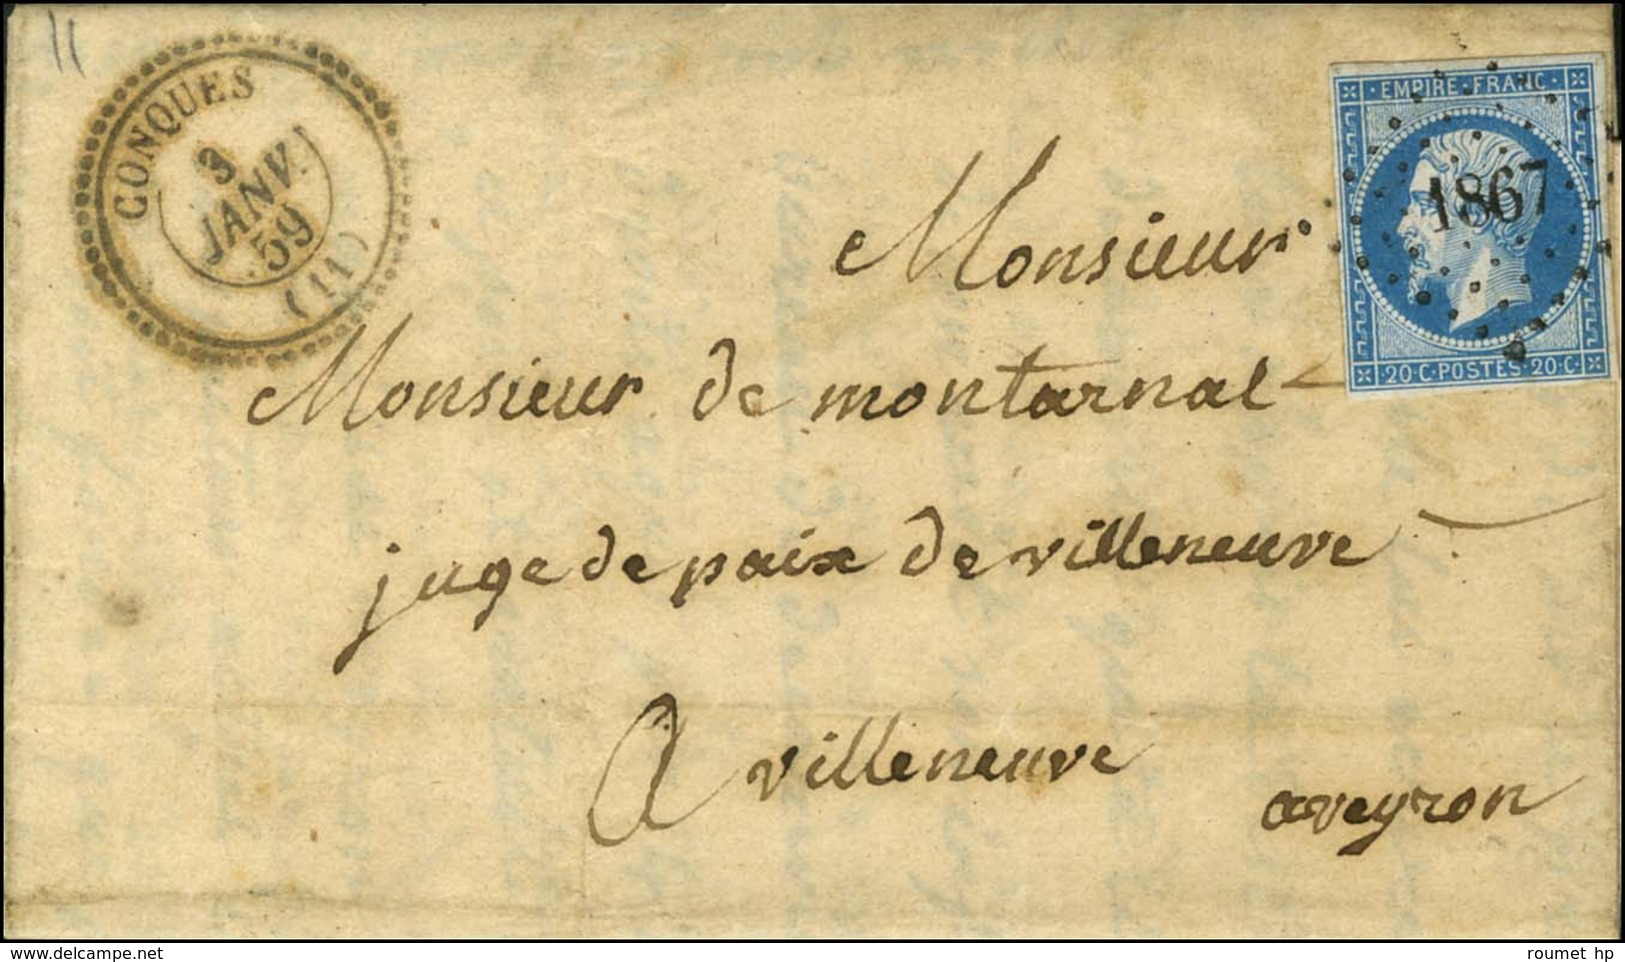 11
CONQUES
3
JANV.
59
(11)
EMPIRE·FRANC·
1867
20·C·POSTES·20·C·
Monsieur
Monsieur de montarnal
juge de paix de villeneuve
A villeneuve
aveyron
www.delcampe.net
roumet hp